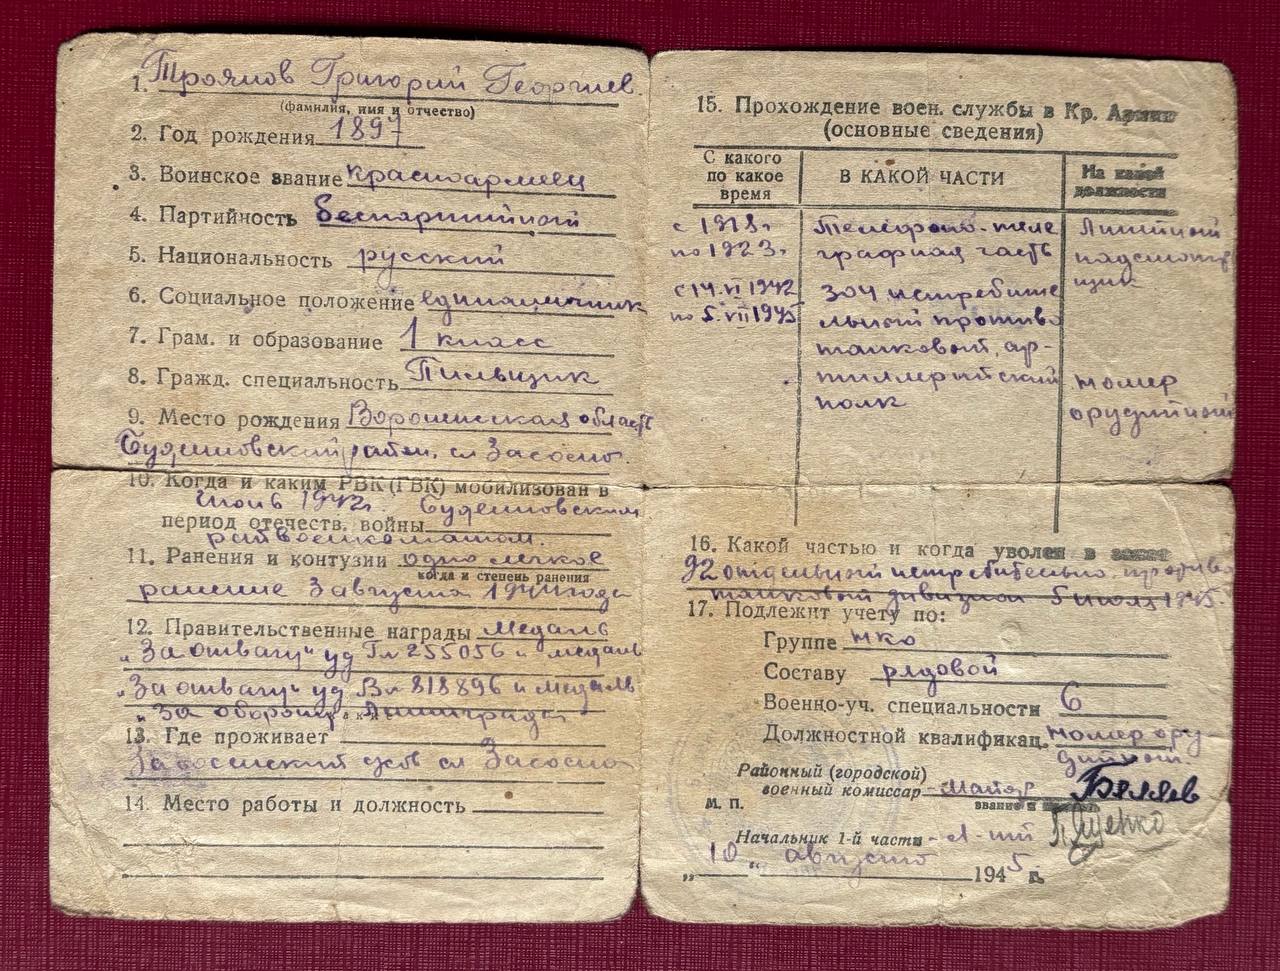 1. Троянов Григорий Георгиев.
(фамилия, имя и отчество)
2. Год рождения 1897
3. Воинское звание красноармеец
4. Партийность беспартийный
5. Национальность русский
6. Социальное положение единоличник
7. Грам. и образование 1 класс
8. Гражд. специальность Пильщик
9. Место рождения Воронежская область
Буденновский район, сл Засосно
10. Когда и каким РВК (ГВК) мобилизован в
Июнь 1942г. Буденновским
период отечеств. войны
райвоенкоматом.
11. Ранения и контузии одно легкое
когда и степень ранения
ранение 3 августа 1944 года
12. Правительственные награды медаль
„За отвагу" уд Гл 255056 и медаль
„За отвагу" уд Вл 818896 и медаль
„За оборону Ленинграда
13. Где проживает
Засосенский с/сов сл Засосно
14. Место работы и должность
15. Прохождение воен. службы в Кр. Армии
(основные сведения)
С какого по какое время
В КАКОЙ ЧАСТИ
На какой должности
с 1918г Телефоно-теле Линейный
по 1923г графная часть надсмотр
щик
с 14.VI 1942 304 истребите
по 5.VII 1945 льный противо
танковый, ар-
тиллерийский номер
полк орудийный
16. Какой частью и когда уволен в запас
92 отдельный истребительно противо
танковый дивизион 5 июля 1945.
17. Подлежит учету по:
Группе нко
Составу рядовой
Военно-уч. специальности 6
Должностной квалификац. номер ору
дийный
Районный (городской)
военный комиссар Майор Беляев
М. П.
звание и
Начальник 1-й части -Л-нт Ященко
„10" августа 1945 г.